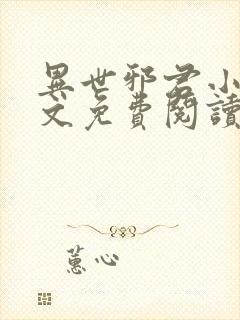 異世邪君小
文免費閱讀
蕙心